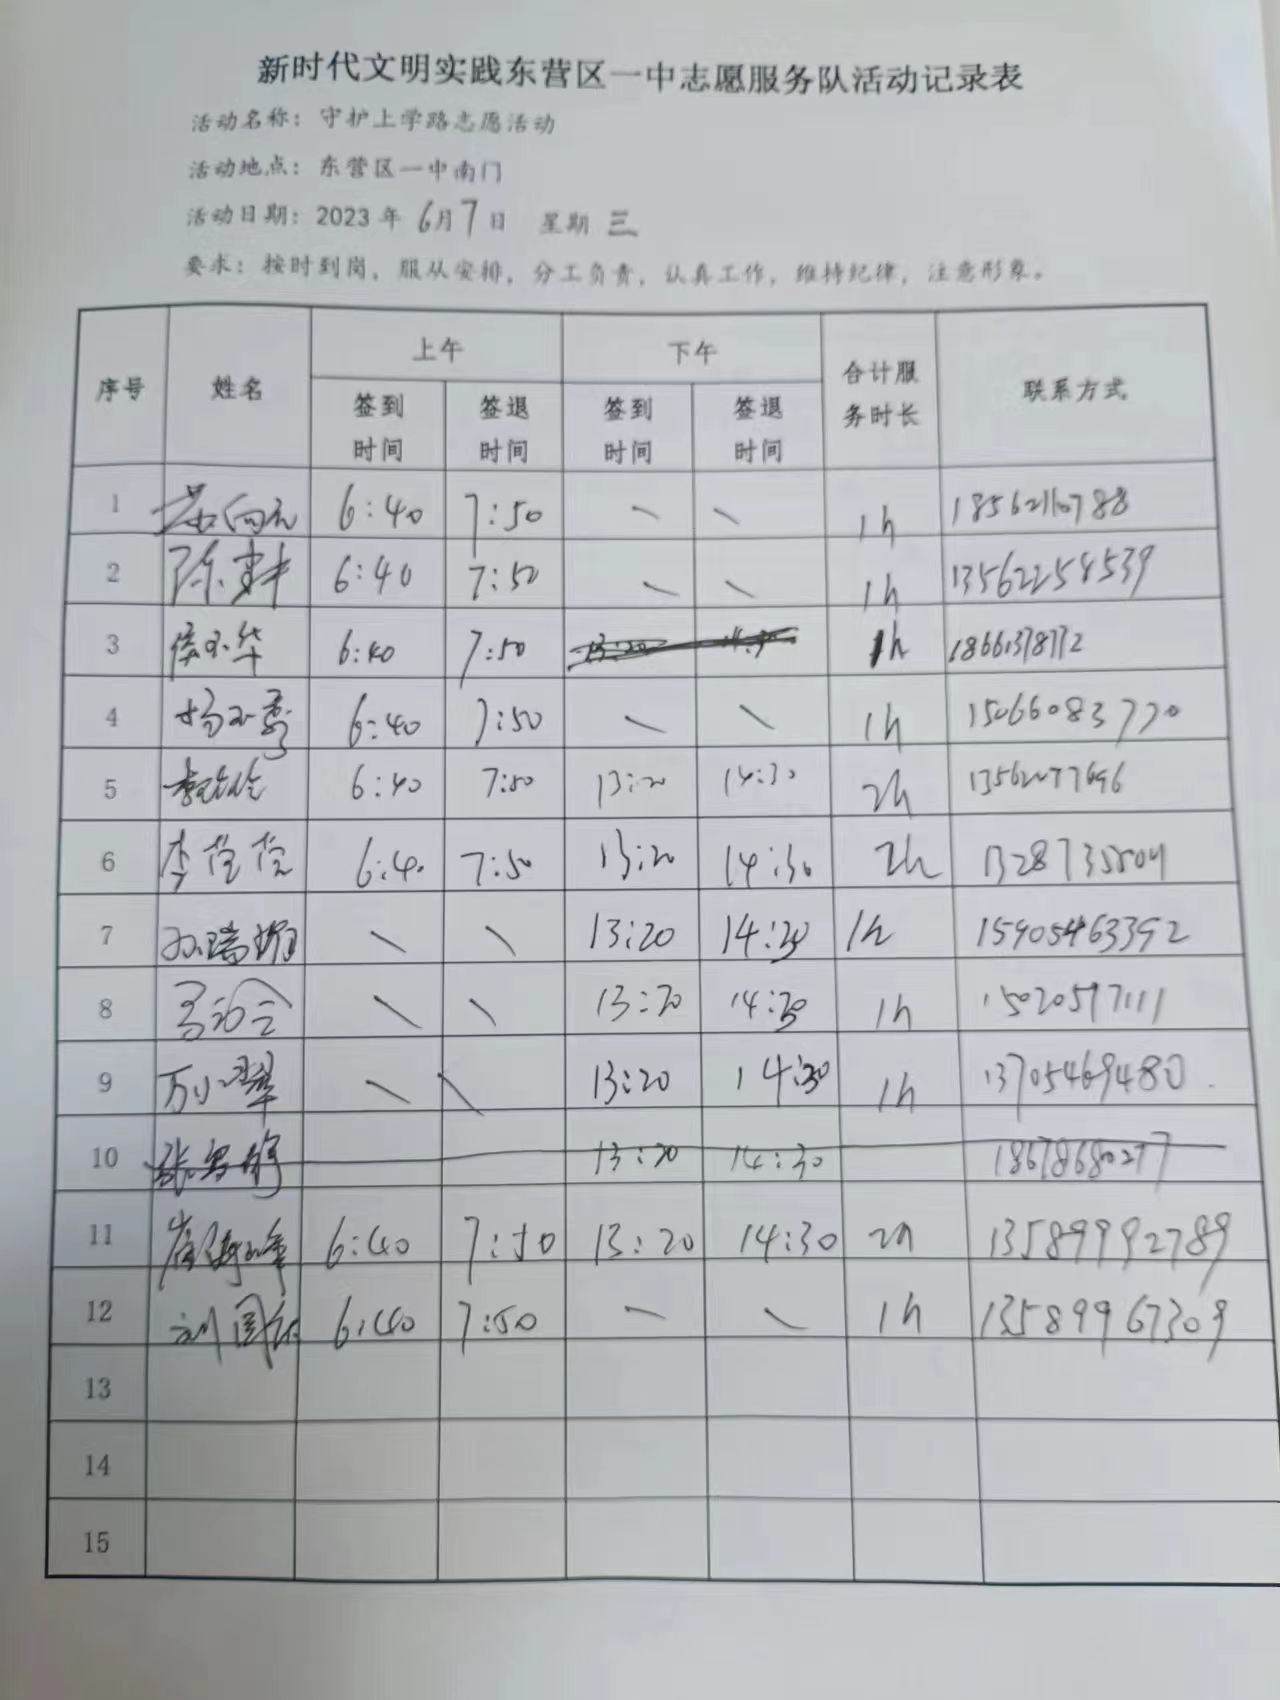 新时代文明实践东营区一中志愿服务队活动记录表
活动名称：守护上学路志愿活动
活动地点：东营区一中南门
活动日期：2023 年 6月7日 星期 三
要求：按时到岗，服从安排，分工负责，认真工作，维持纪律，注意形象。
序号 姓名 上午 下午 合计服务时长 联系方式
签到时间 签退时间 签到时间 签退时间
1 6:40 7:50 \ \ 1h 18562110788
2 陈 6:40 7:50 \ \ 1h 13562254539
3 6:40 7:50 13:20 14:30 1h 18661378772
4 杨 6:40 7:50 \ \ 1h 15066083770
5 6:40 7:50 13:20 14:30 2h 13562077696
6 李莹莹 6:40 7:50 13:20 14:30 2h
7 孙瑞 \ \ 13:20 14:30 1h 15905463392
8 \ \ 13:20 14:30 1h 15020597111
9 万小翠 \ \ 13:20 14:30 1h 13705469480
10 张 13:20 14:30 18678680277
11 崔 6:40 7:50 13:20 14:30 2h 13589992789
12 刘国 6:40 7:50 \ \ 1h 13589967309
13
14
15